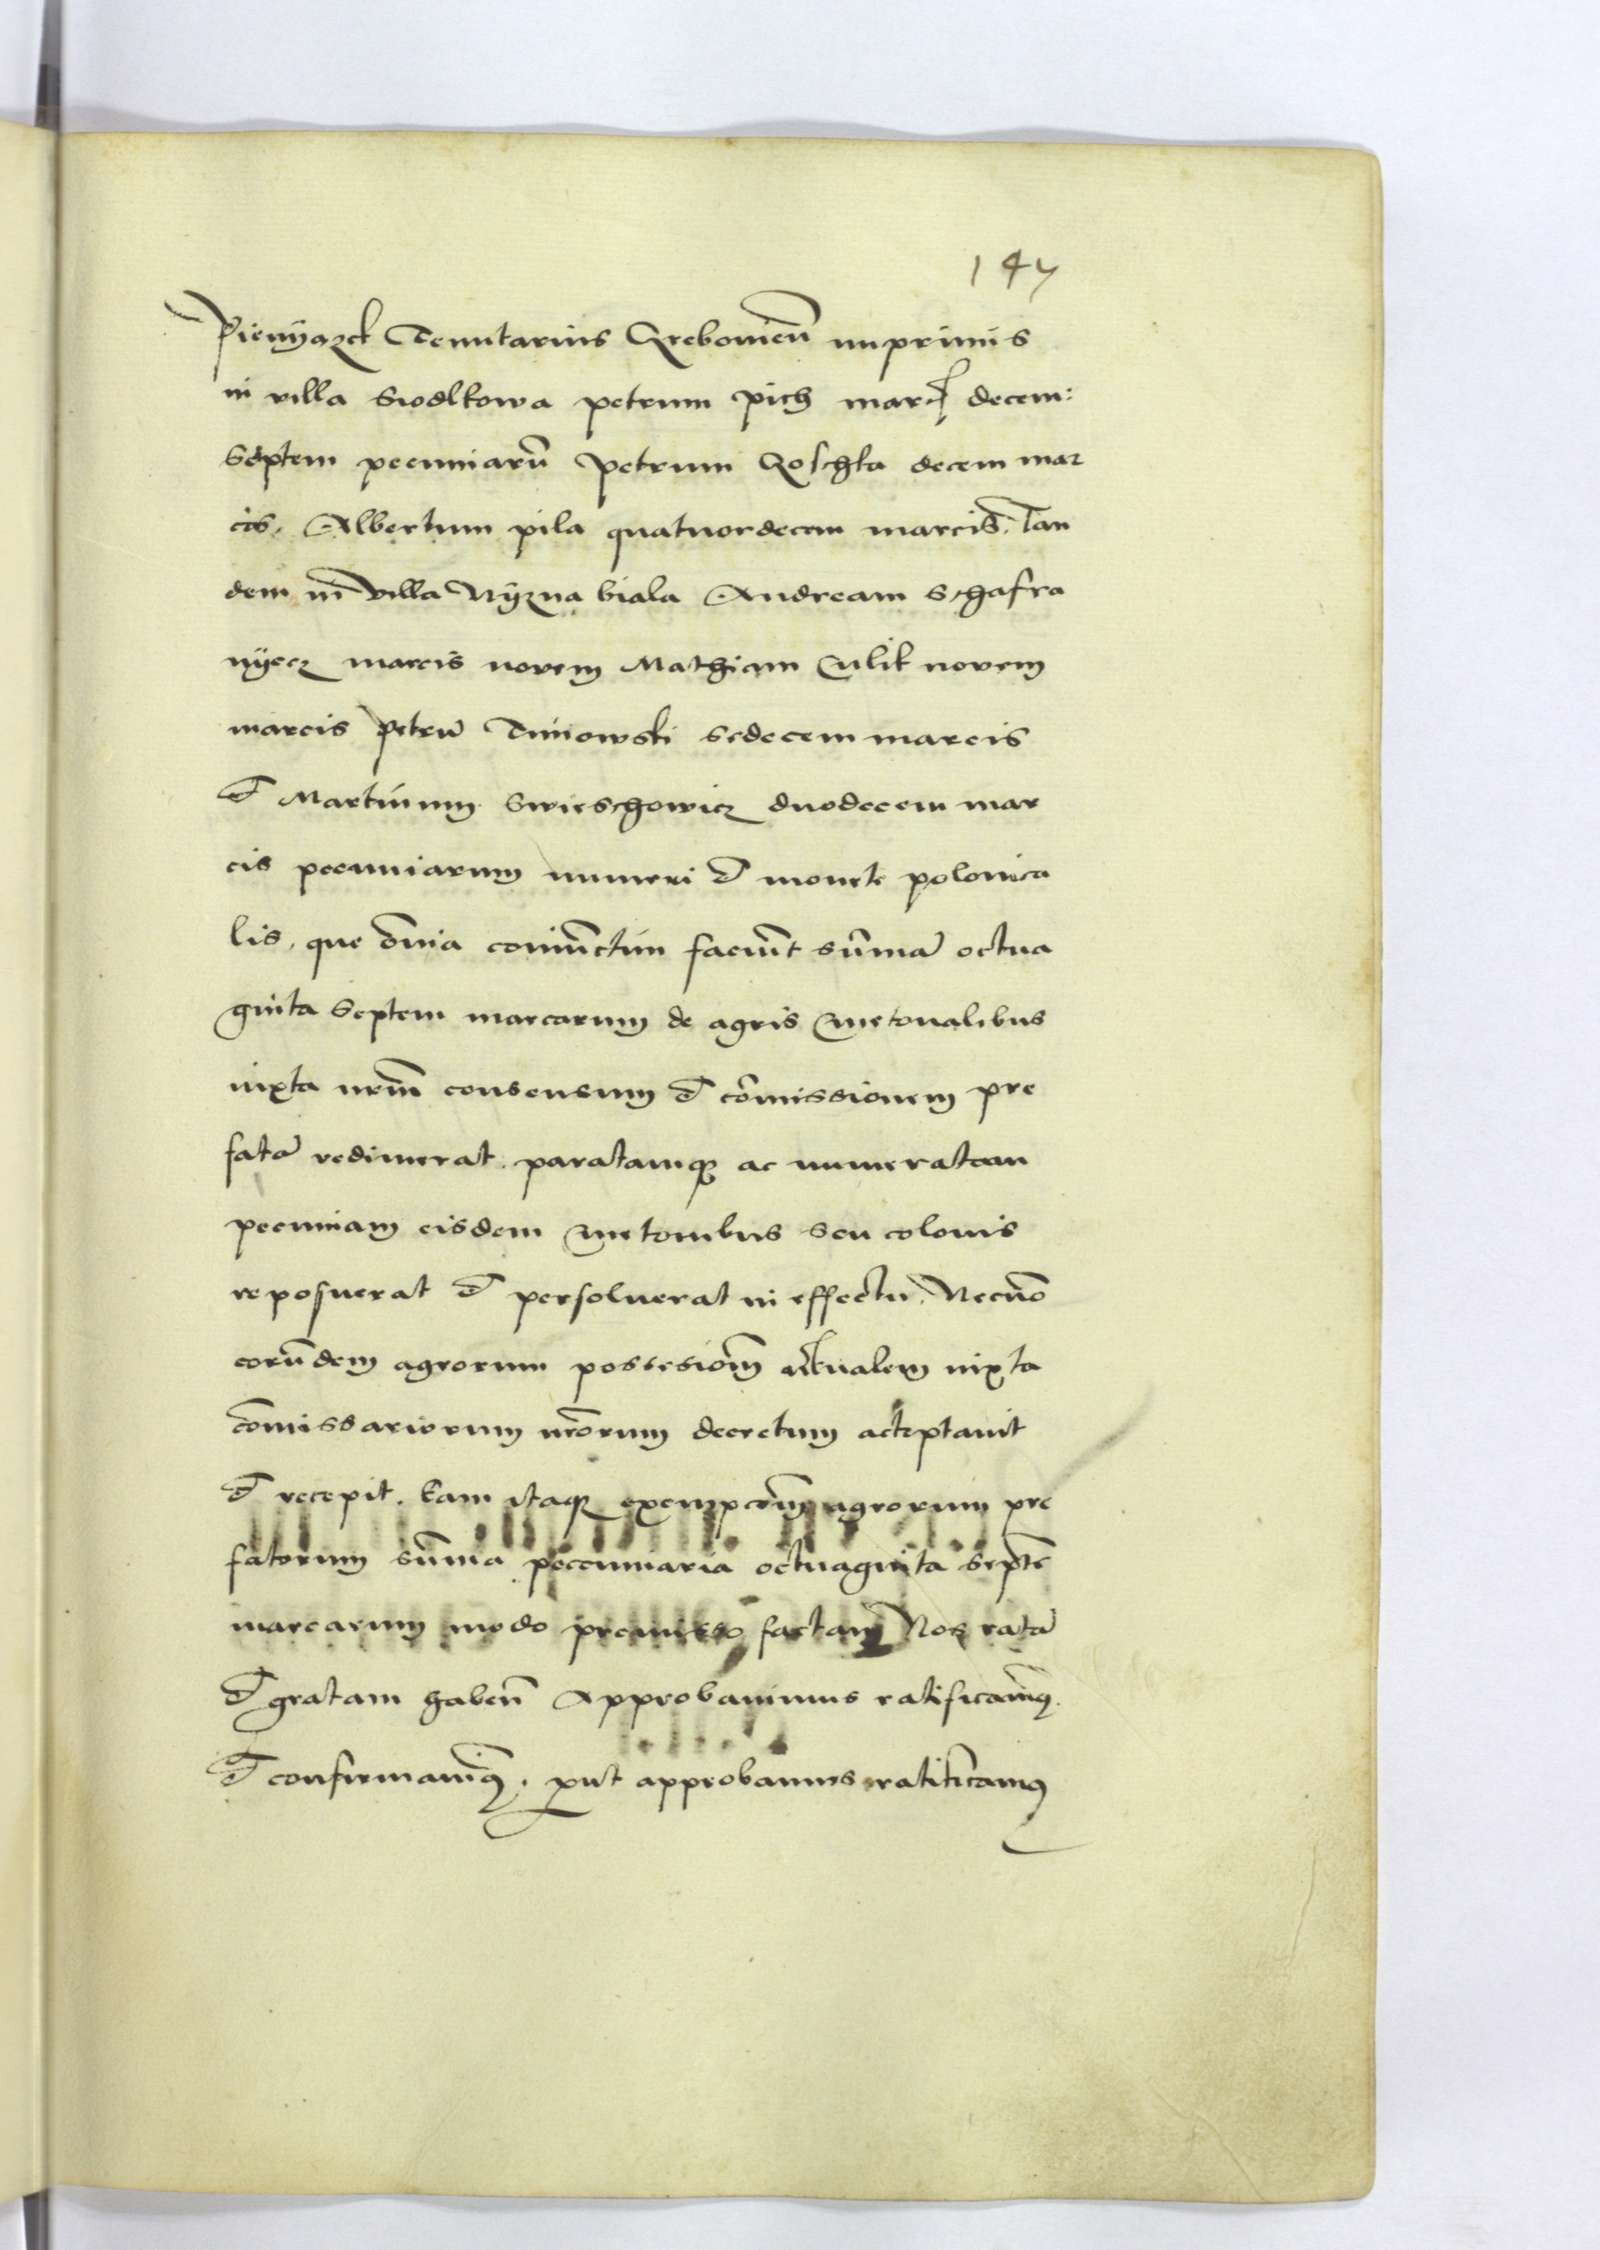 147
Pienyązek Tenutarius Grebouień imprimis
in villa Siodlkowa petrum pich marc̃ decem:
Septem pecuniarũ Petrum Koschla decem mar
cis, Albertum pila quatuordecem marcis. Tan
dem in villa Nyzna biala Andream Schafra
nyecz marcis novem Mathiam Culik novem
marcis Petrũ Tuiowski sedecem marcis
et Martinum Swieschowicz duodecem mar
cis pecuniarum numeri et monete polonica
lis, que om̃ia coniũctim faciũt sũmã octua
ginta Septem marcarum de agris Cmetonalibus
iuxta nr̃m consensum et cõmissionem pre
fatã redimerat. paratamq; ac numeratam
pecuniam eisdem Cmetonibus seu colonis
reposuerat et persoluerat in effectu. Necnõ
eorũdem agrorum possesioñm actualem iuxta
cõmissariorum nr̃orum decretum acceptauit
et recepit. Eam itaq; exempcõnem agrorum pre
fatorum sũma peccuniaria octuaginta septẽ
marcarum modo premisso factam Nos ratã
et gratam habeñ Approbauimus ratificauimꝰ.
et confirmauimꝰ. prõut approbamus ratificamꝰ